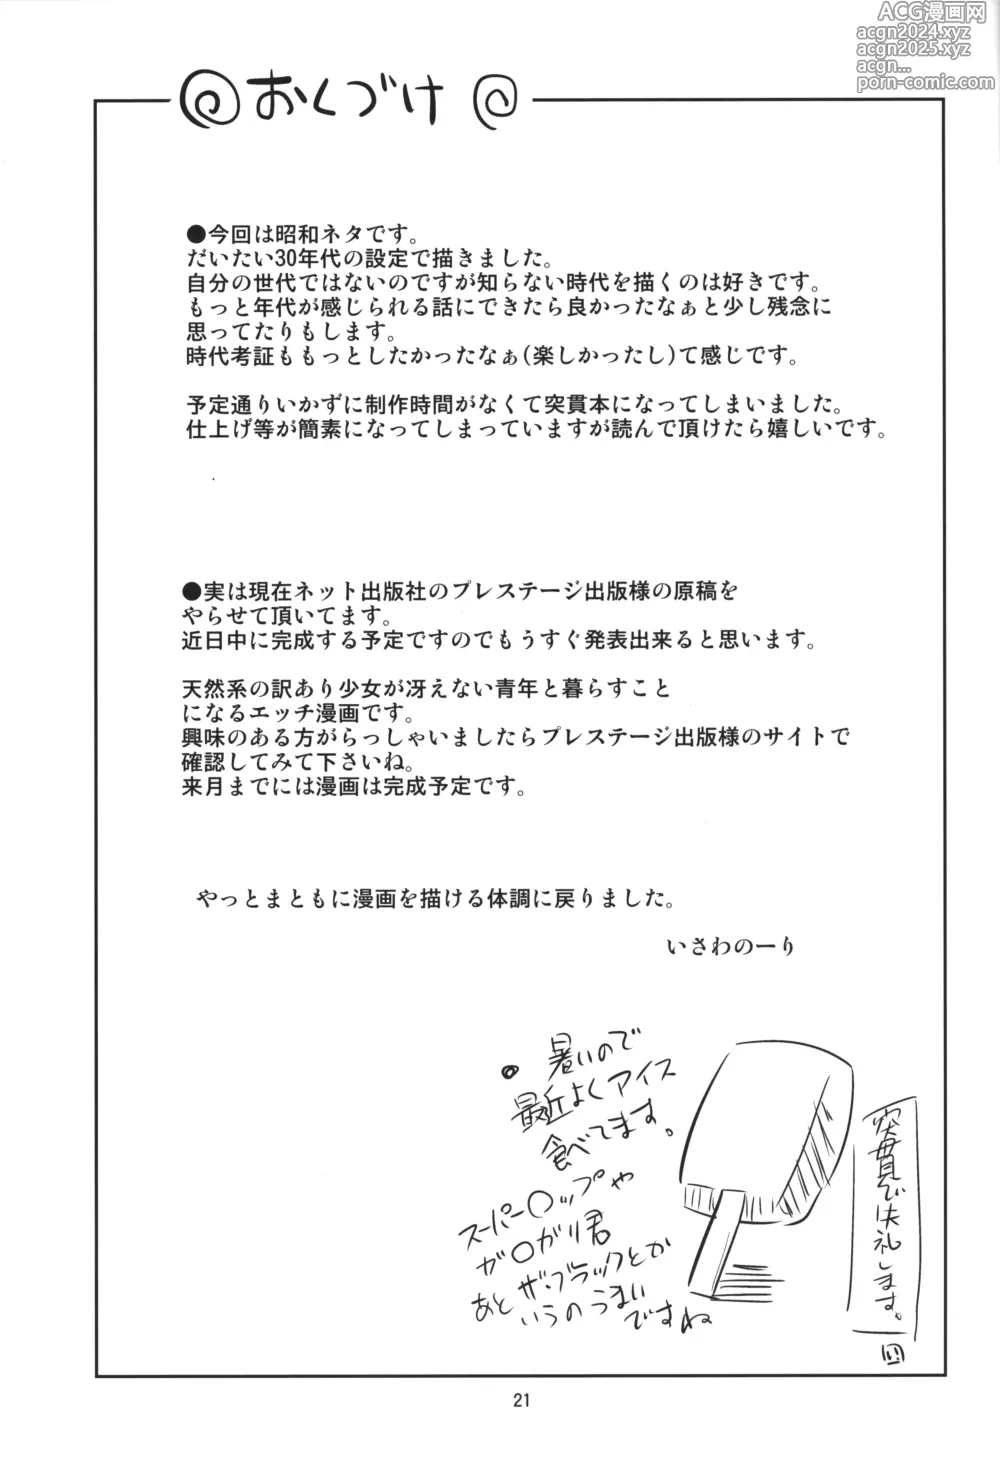 ACG漫画网
acgn2024.xyz
acgn2025.xyz
acgn...
porn-comic.com
おくづけ
●今回は昭和ネタです。
だいたい30年代の設定で描きました。
自分の世代ではないのですが知らない時代を描くのは好きです。
もっと年代が感じられる話にできたら良かったなぁと少し残念に
思ってたりもします。
時代考証ももっとしたかったなぁ(楽しかったし)て感じです。
予定通りいかずに制作時間がなくて突貫本になってしまいました。
仕上げ等が簡素になってしまっていますが読んで頂けたら嬉しいです。
●実は現在ネット出版社のプレステージ出版様の原稿を
やらせて頂いてます。
近日中に完成する予定ですのでもうすぐ発表出来ると思います。
天然系の訳あり少女が冴えない青年と暮らすこと
になるエッチ漫画です。
興味のある方がらっしゃいましたらプレステージ出版様のサイトで
確認してみて下さいね。
来月までには漫画は完成予定です。
やっとまともに漫画を描ける体調に戻りました。
いさわのーり
●暑いので
最近よくアイス
食べてます。
スーパー〇ップや
ガ〇ガリ君
あとザ・ブラックとか
いうのうまい
ですね
突貫で失礼します。
21